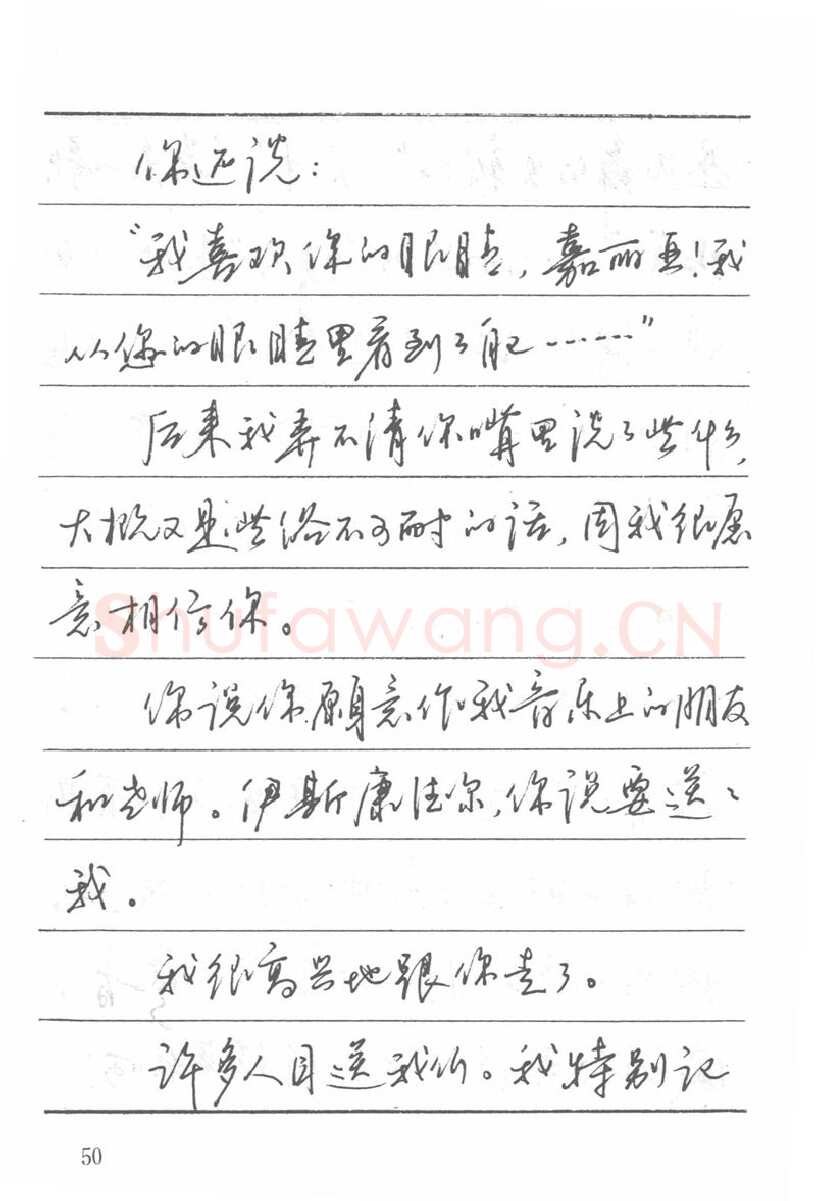 你还说：
“我喜欢你的眼睛，嘉丽亚！我
从您的眼睛里看到了自己……”
后来我弄不清你嘴里说了些什么，
大概又是些俗不可耐的话，因我很愿
意相信你。
Shufawang.CN
你说你愿意作我音乐上的朋友
和老师。伊斯康德尔，你说要送送
我。
我很高兴地跟你走了。
许多人目送我们。我特别记
50